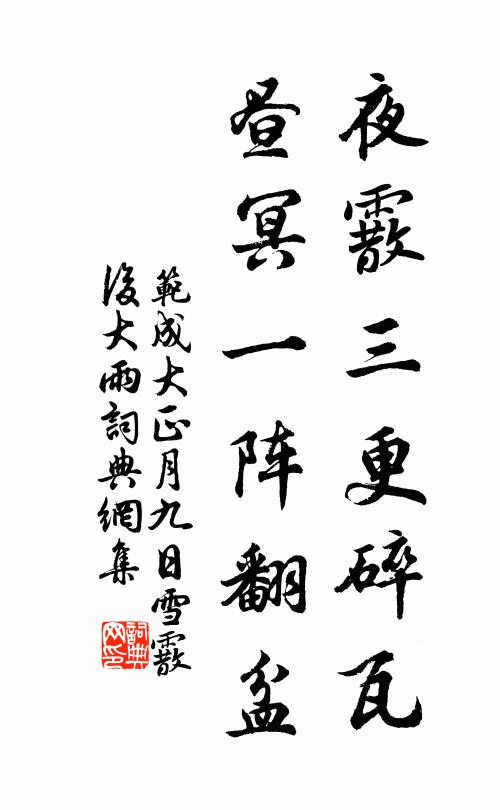 夜霰三更碎瓦
昼冥一阵翻盆
範成大正月九日雪霰
後大雨詞典網集
詞典
网印